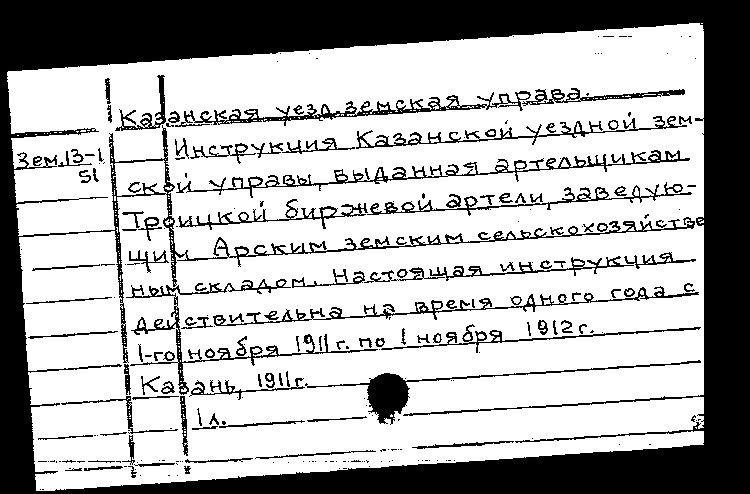 Казанская уезд.земская управа.
Зем.13-1
51
Инструкция Казанской уездной зем-
ской управы, выданная артельщикам
Троицкой биржевой артели, заведую-
щим Арским земским сельскохозяйстве
ным складом. Настоящая инструкция
действительна на время одного года с
1-го ноября 1911 г. по 1 ноября 1912 г.
Казань, 1911г.
1 л.